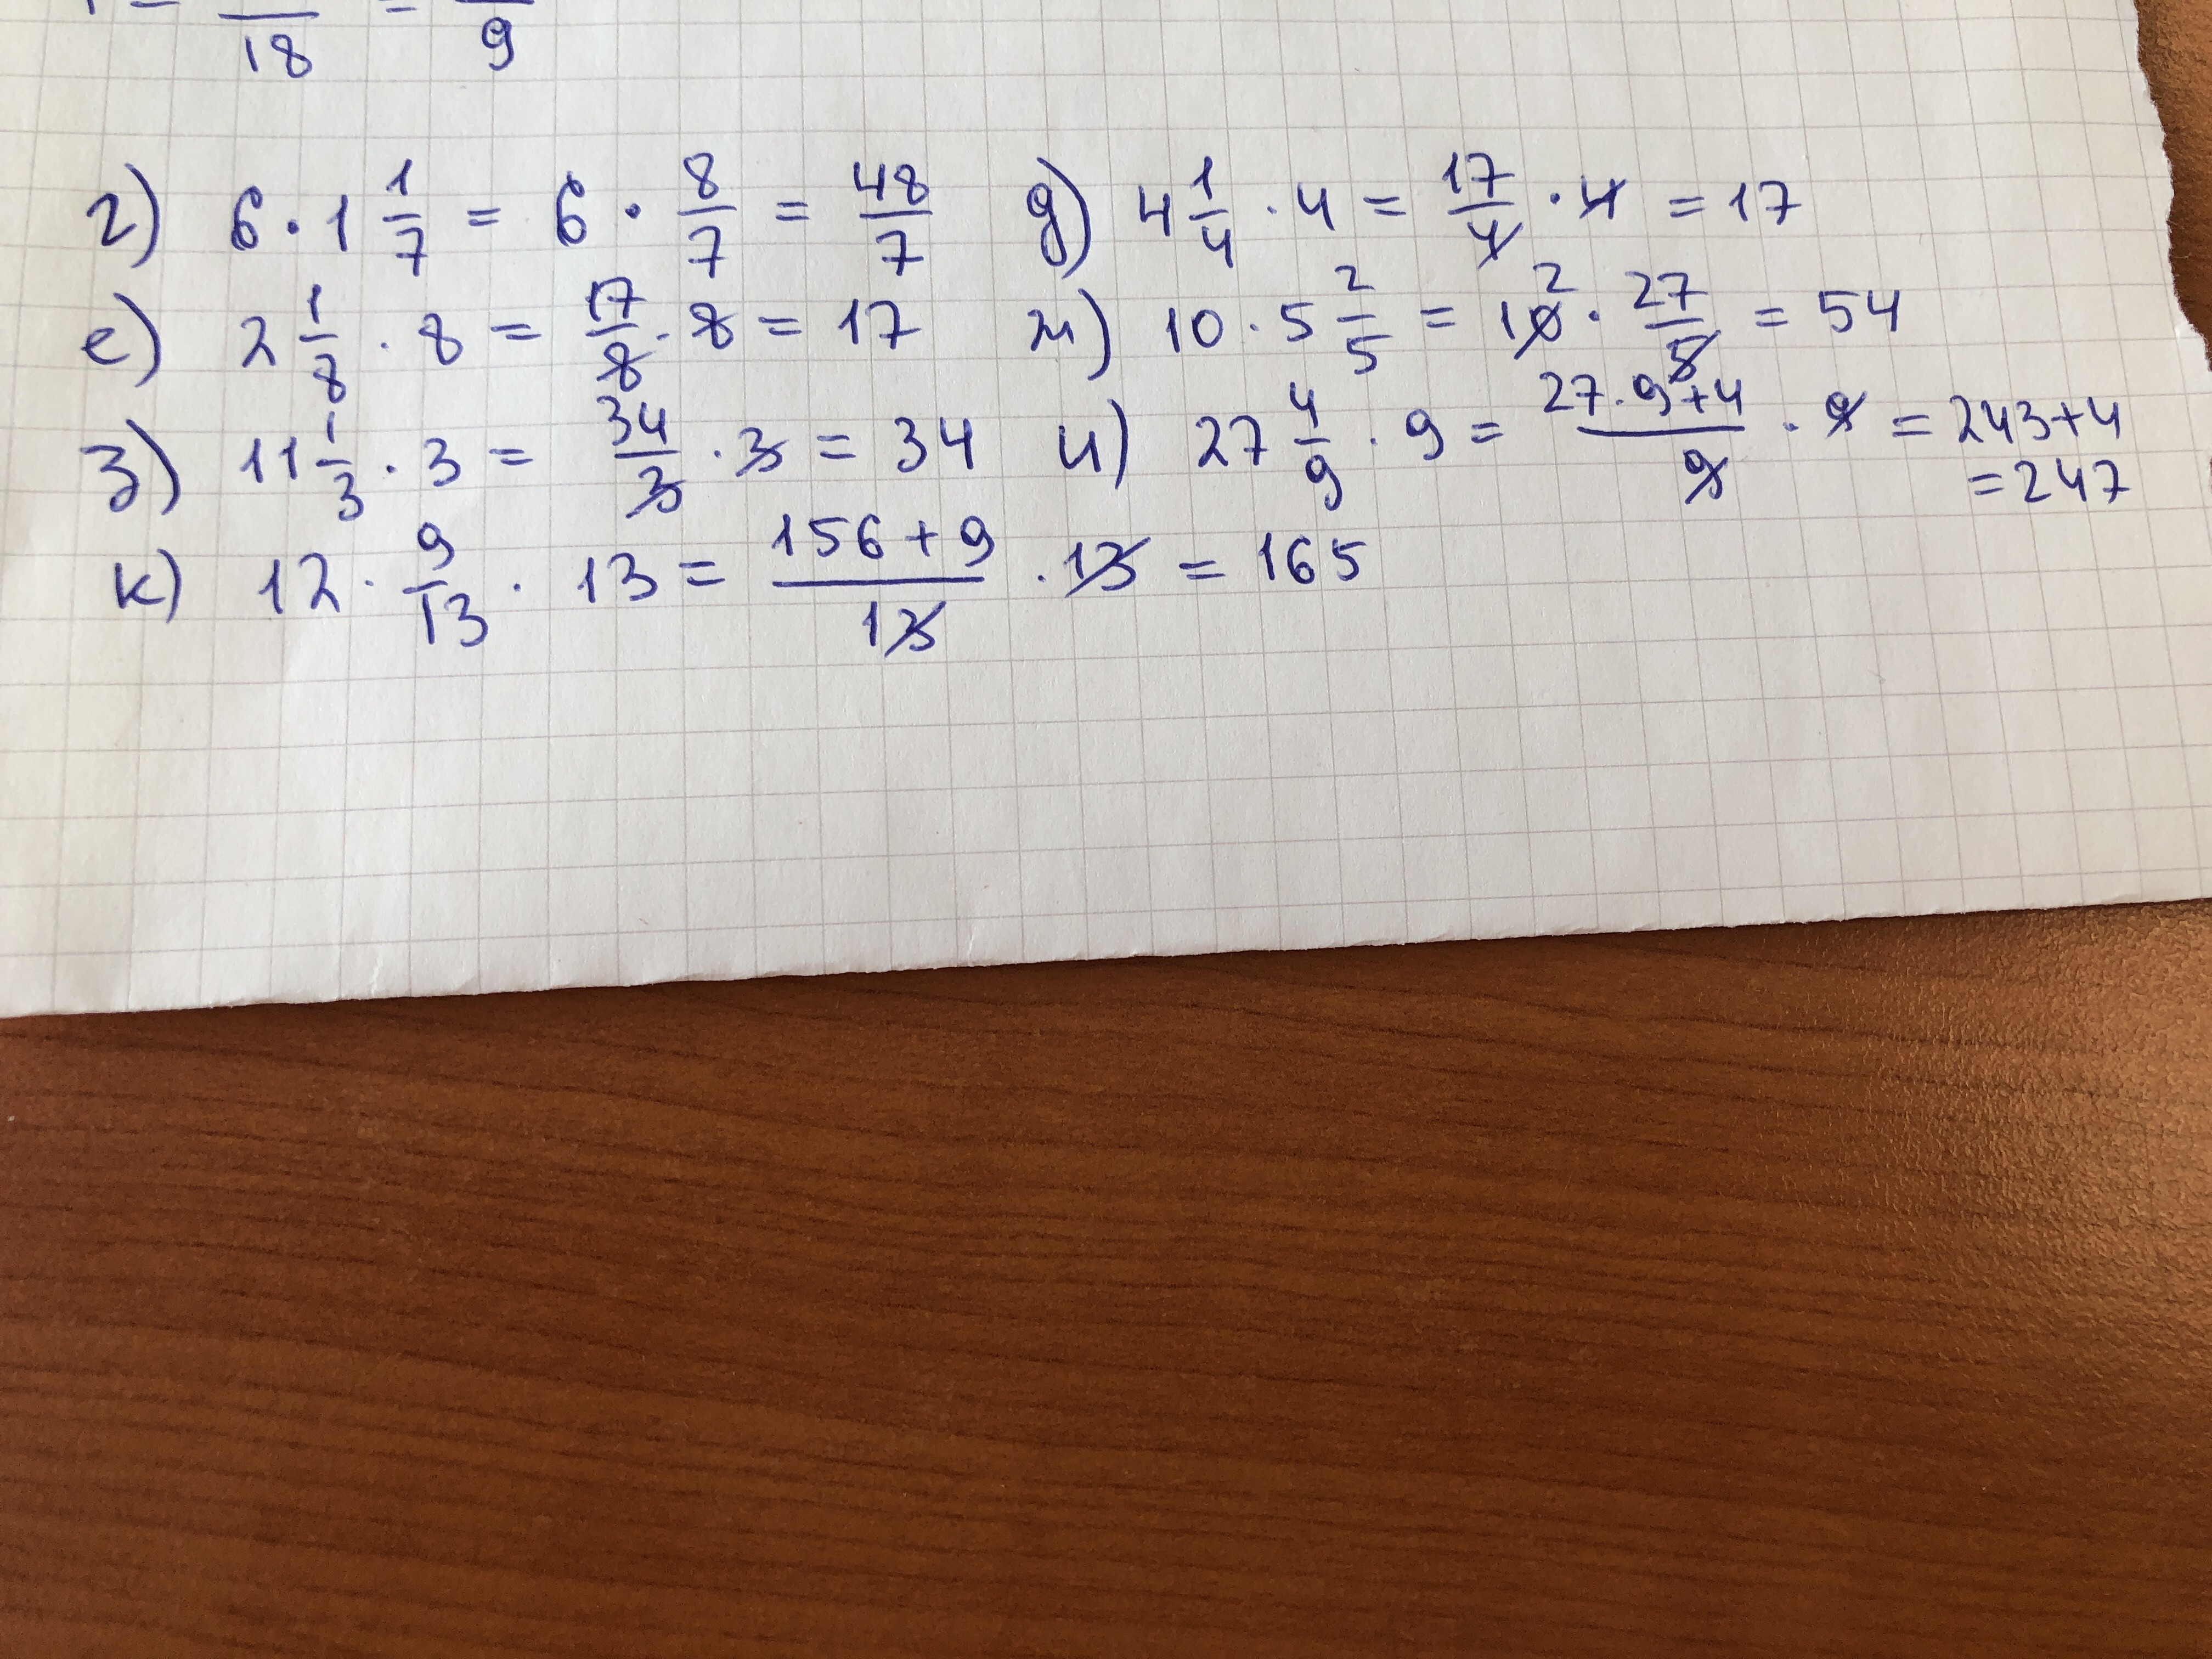 18 9
г) 6 · 1 1/7 = 6 · 8/7 = 48/7 д) 4 1/4 · 4 = 17/4 · 4 = 17
е) 2 1/8 · 8 = 17/8 · 8 = 17 ж) 10 · 5 2/5 = 10 2 · 27/5 = 54
з) 11 1/3 · 3 = 34/3 · 3 = 34 и) 27 4/9 · 9 = 27·9+4/9 · 9 = 243+4
=247
к) 12 · 9/13 · 13 = 156+9/13 · 13 = 165